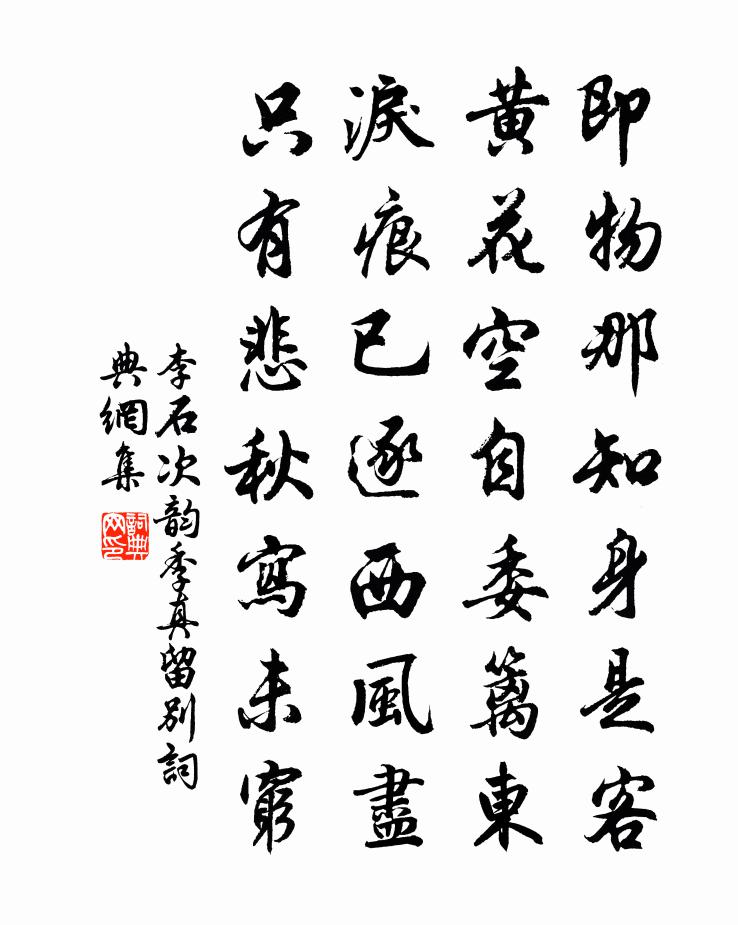 即物那知身是客
黄花空自委籬東
淚痕已逐西風盡
只有悲秋寫未窮
李石次韵季真留別詞
典網集
詞典网印